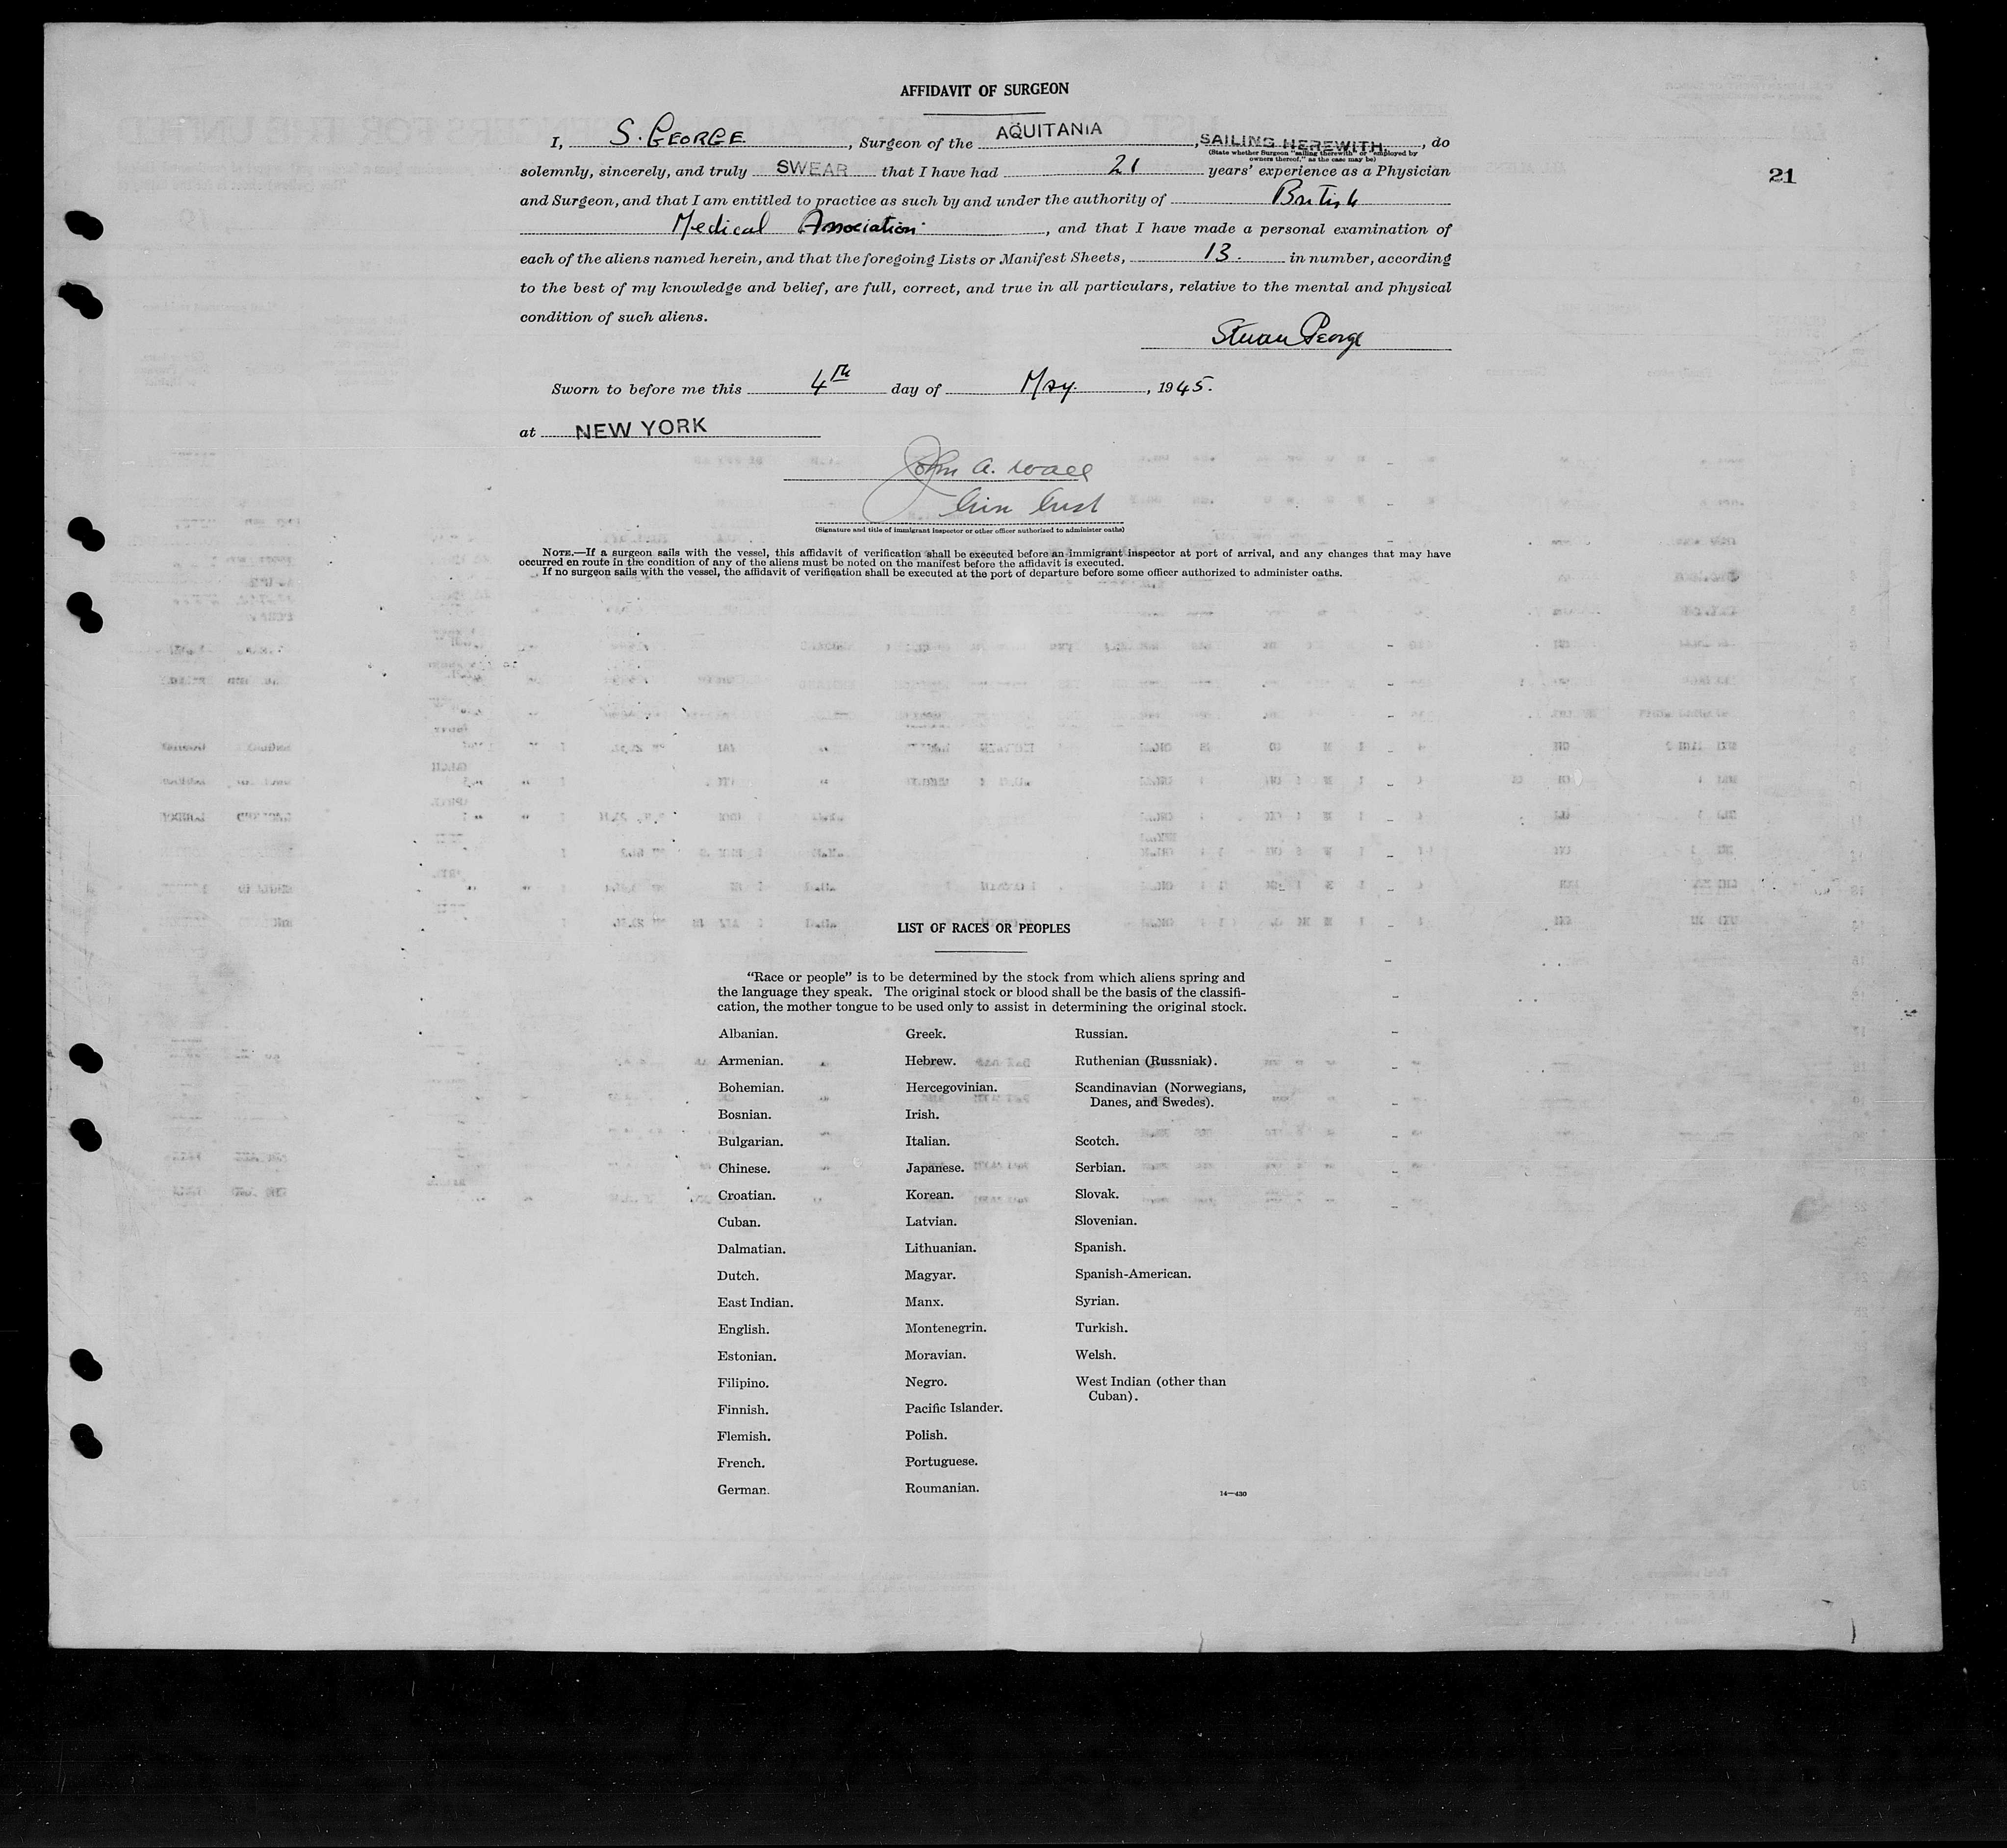 AFFIDAVIT OF SURGEON
I, S. GEORGE, Surgeon of the AQUITANIA, SAILING HEREWITH, do
(State whether Surgeon "sailing therewith" or "employed by
owners thereof," as the case may be)
solemnly, sincerely, and truly SWEAR that I have had 21 years' experience as a Physician
21
and Surgeon, and that I am entitled to practice as such by and under the authority of British
Medical Association, and that I have made a personal examination of
each of the aliens named herein, and that the foregoing Lists or Manifest Sheets, 13. in number, according
to the best of my knowledge and belief, are full, correct, and true in all particulars, relative to the mental and physical
condition of such aliens.
George
Sworn to before me this 4th day of May, 1945.
at NEW YORK
John A. Wall
(Signature and title of immigrant inspector or other officer authorized to administer oaths)
NOTE.—If a surgeon sails with the vessel, this affidavit of verification shall be executed before an immigrant inspector at port of arrival, and any changes that may have
occurred en route in the condition of any of the aliens must be noted on the manifest before the affidavit is executed.
If no surgeon sails with the vessel, the affidavit of verification shall be executed at the port of departure before some officer authorized to administer oaths.
LIST OF RACES OR PEOPLES
"Race or people" is to be determined by the stock from which aliens spring and
the language they speak. The original stock or blood shall be the basis of the classifi-
cation, the mother tongue to be used only to assist in determining the original stock.
Albanian.
Armenian.
Bohemian.
Bosnian.
Bulgarian.
Chinese.
Croatian.
Cuban.
Dalmatian.
Dutch.
East Indian.
English.
Estonian.
Filipino.
Finnish.
Flemish.
French.
German.
Greek.
Hebrew.
Hercegovinian.
Irish.
Italian.
Japanese.
Korean.
Latvian.
Lithuanian.
Magyar.
Manx.
Montenegrin.
Moravian.
Negro.
Pacific Islander.
Polish.
Portuguese.
Roumanian.
Russian.
Ruthenian (Russniak).
Scandinavian (Norwegians,
Danes, and Swedes).
Scotch.
Serbian.
Slovak.
Slovenian.
Spanish.
Spanish-American.
Syrian.
Turkish.
Welsh.
West Indian (other than
Cuban).
14—430